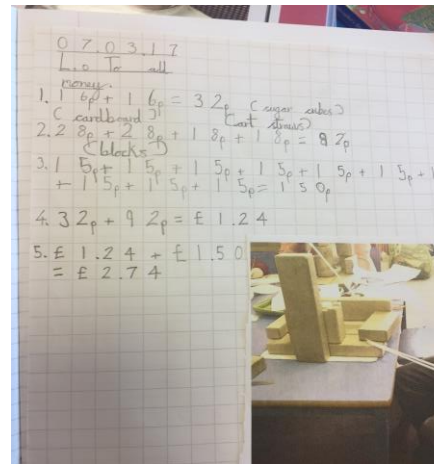 07.03.17
L.o To add
money.
1. 16p + 16p = 32p (sugar cubes)
(cardboard) (art straws)
2. 28p + 28p + 18p + 18p = 92p
(blocks)
3. 15p + 15p + 15p + 15p + 15p + 15p + 1
+ 15p + 15p + 15p = 150p
4. 32p + 92p = £1.24
5. £1.24 + £1.50
= £2.74